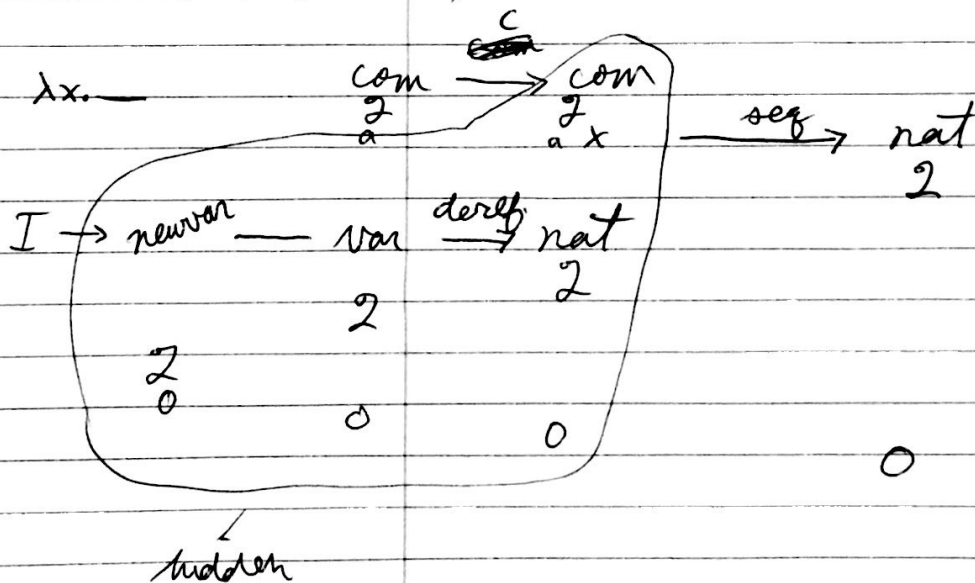 C
λx. — com → com
2 2
a a x seq → nat
2
I → newvar — var deref. → nat
2
2
2
0 0 0
0
hidden